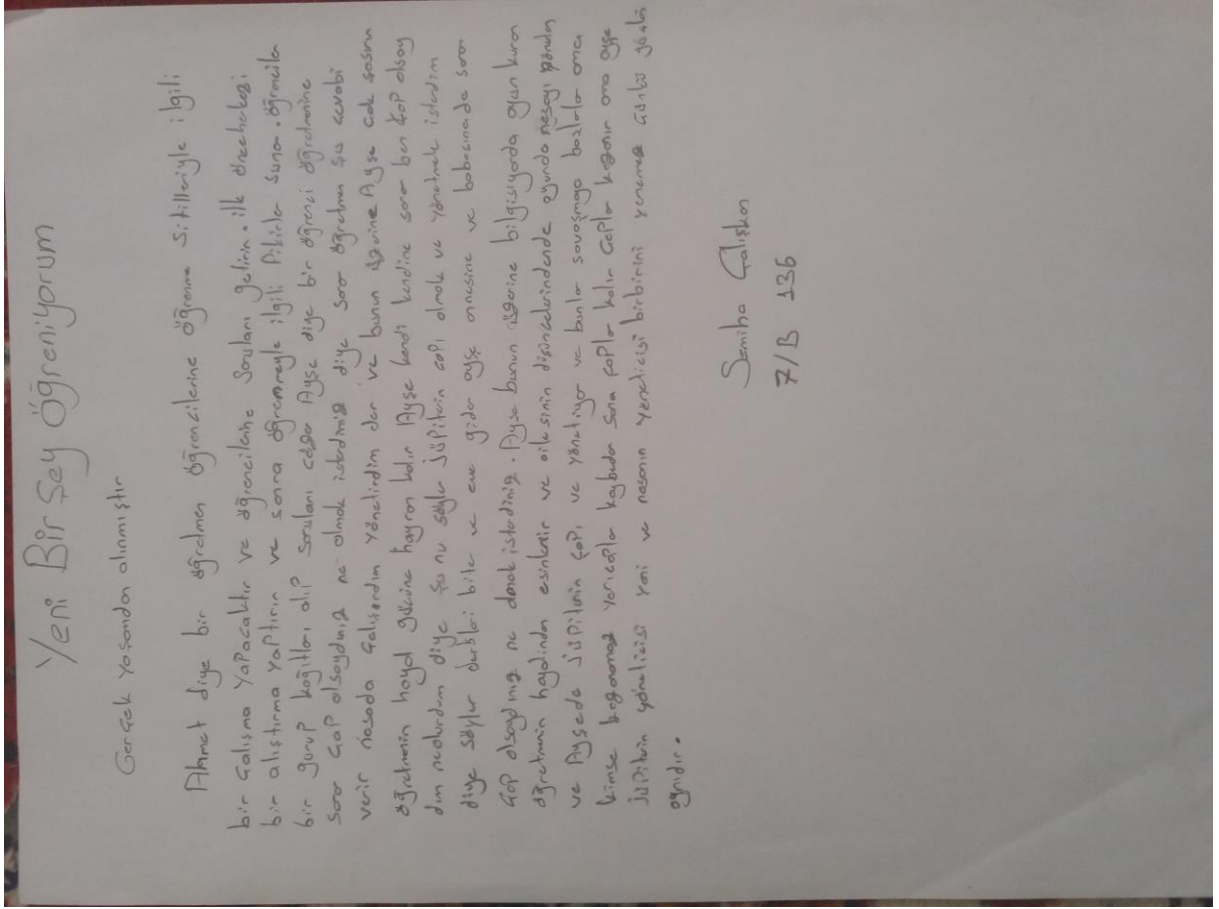 Yeni Bir Şey Öğreniyorum
Gerçek Yaşandan alınmıştır
Ahmet diye bir öğretmen öğrencilerine öğrenme sitilleriyle ilgili
bir çalışma yapacaktır ve öğrencilerine Soruları gelirin. ilk
bir alıştırma yaptırın ve sonra öğrenmeyle ilgili fikirler sunar. öğrenciler
bir gurup kağıtları alıp Soruları Ayşe diye bir öğrenci öğretmenine
sorar çöp olsaydınız ne olmak isterdiniz diye sorar öğretmen şu cevabı
verir nasada çalışırdım yönetirdim der ve bunun üzerine Ayşe çok şaşırır
öğretmenin hayal gücüne hayran kalır Ayşe kendi kendine sorar ben çöp olsay
dım neolurdum diye şunu söyler Jüpiterin çöpı olmak ve yönetmek isterdim
diye söyler dersleri bite ve eve gider ayşe annesine ve babasınada sorar
çöp olsaydınız ne olmak isterdiniz. Ayşe bunun üzerine bilgisiyarda oyun kurar
öğretmenin hayalinden esinlenir ve ailesinin düşüncelerindende oyunda nasayı yöneten
ve Ayşede Jüpiterin çöpı ve yönetiyor ve bunlar savaşmaya başlarlar ama
kimse kazanamaz kaybeder Sona çöpler kalır çöpler kazanır ama ayşe
Jüpiterin yöneticisi yani ve nasanın yöneticisi birbirini yenemez çünkü güçleri
aynıdır.
Semiha Çalışkan
7/B 136